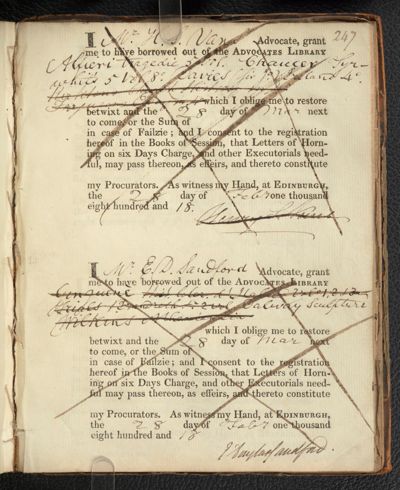 247
I Mr H. D. Advocate, grant
me to have borrowed out of the ADVOCATES LIBRARY
Alfieri Tragedie Chaucer Tyr-
whitt's 5 vol 8o Davies 4o
which I oblige me to restore
betwixt and the 28 day of Mar next
to come, or the Sum of
in case of Failzie; and I consent to the registration
hereof in the Books of Session, that Letters of Horn-
ing on six Days Charge, and other Executorials need-
ful, may pass thereon, as effeirs, and thereto constitute
my Procurators. As witness my Hand, at EDINBURGH,
the 28 day of Feby one thousand
eight hundred and 18.
I Mr E. D. Sandford Advocate, grant
me to have borrowed out of the ADVOCATES LIBRARY
Dalway Sculpture
Wilkins
which I oblige me to restore
betwixt and the 28 day of Mar next
to come, or the Sum of
in case of Failzie; and I consent to the registration
hereof in the Books of Session, that Letters of Horn-
ing on six Days Charge, and other Executorials need-
ful may pass thereon, as effeirs, and thereto constitute
my Procurators. As witness my Hand, at EDINBURGH,
the 28 day of Feby one thousand
eight hundred and 18
Sandford